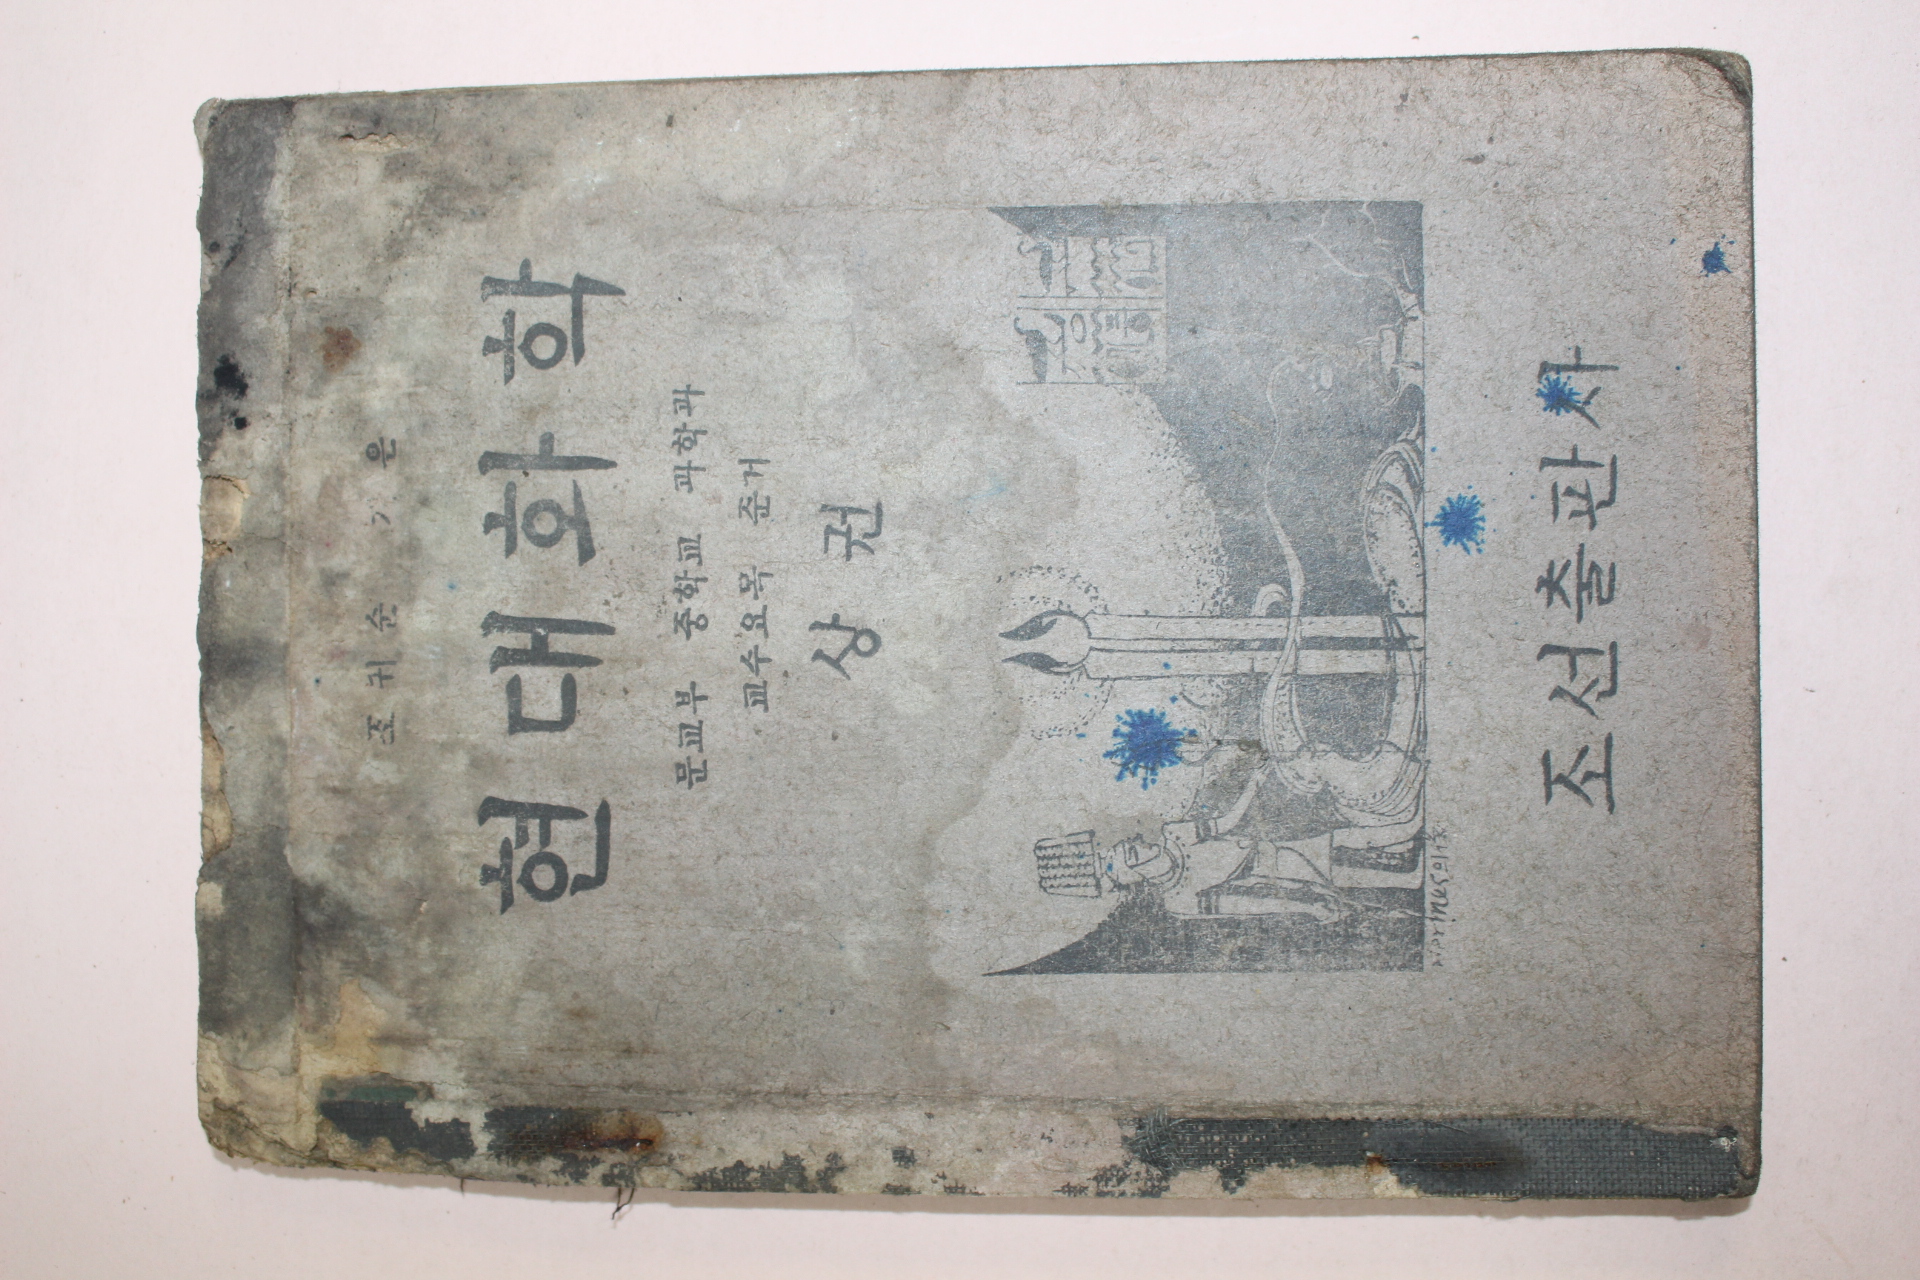 조 귀 순 지 은
현대화학
문교부 중학교 과학과
교수요목 준거
상 권
조선출판사